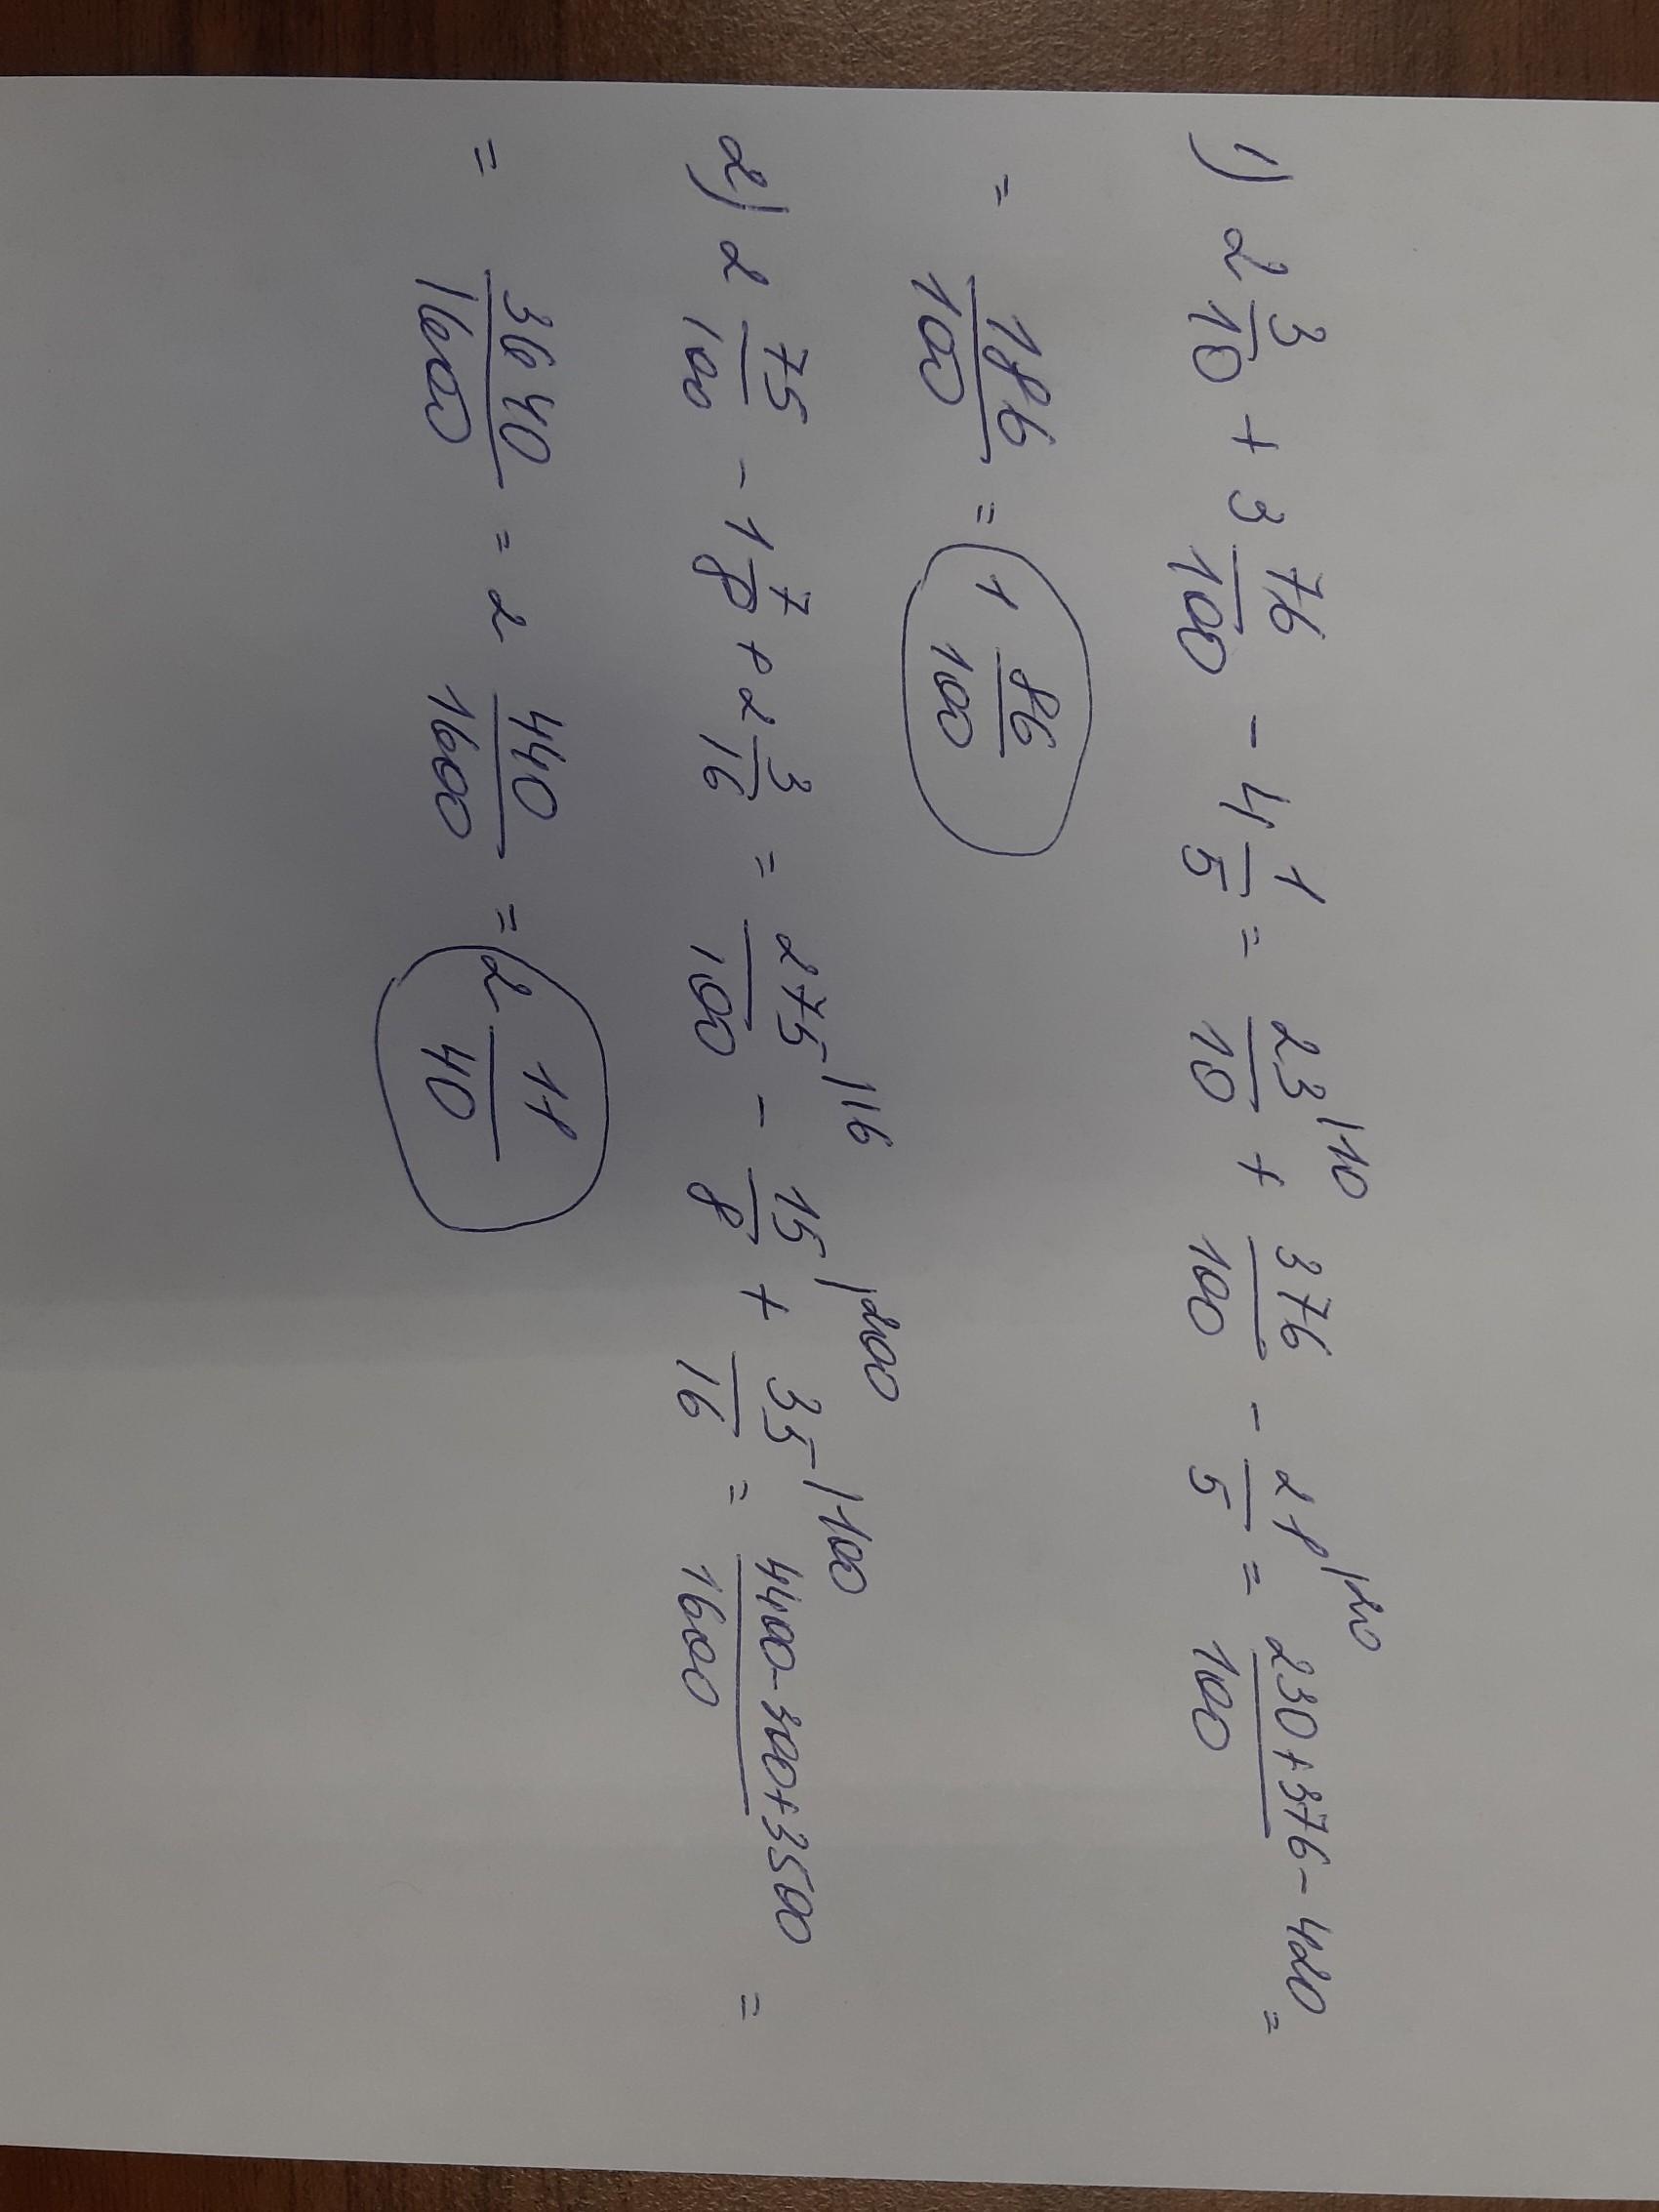 1) 2 3/10 + 3 76/100 - 4 1/5 = 23/10 |10 + 376/100 - 21/5 |20 = (230+376-420)/100 =
= 186/100 = 1 86/100
2) 2 75/100 - 1 7/8 + 2 3/16 = 275/100 |16 - 15/8 |200 + 35/16 |100 = (4400-300+3500)/1600 =
= 3640/1600 = 2 440/1600 = 2 11/40